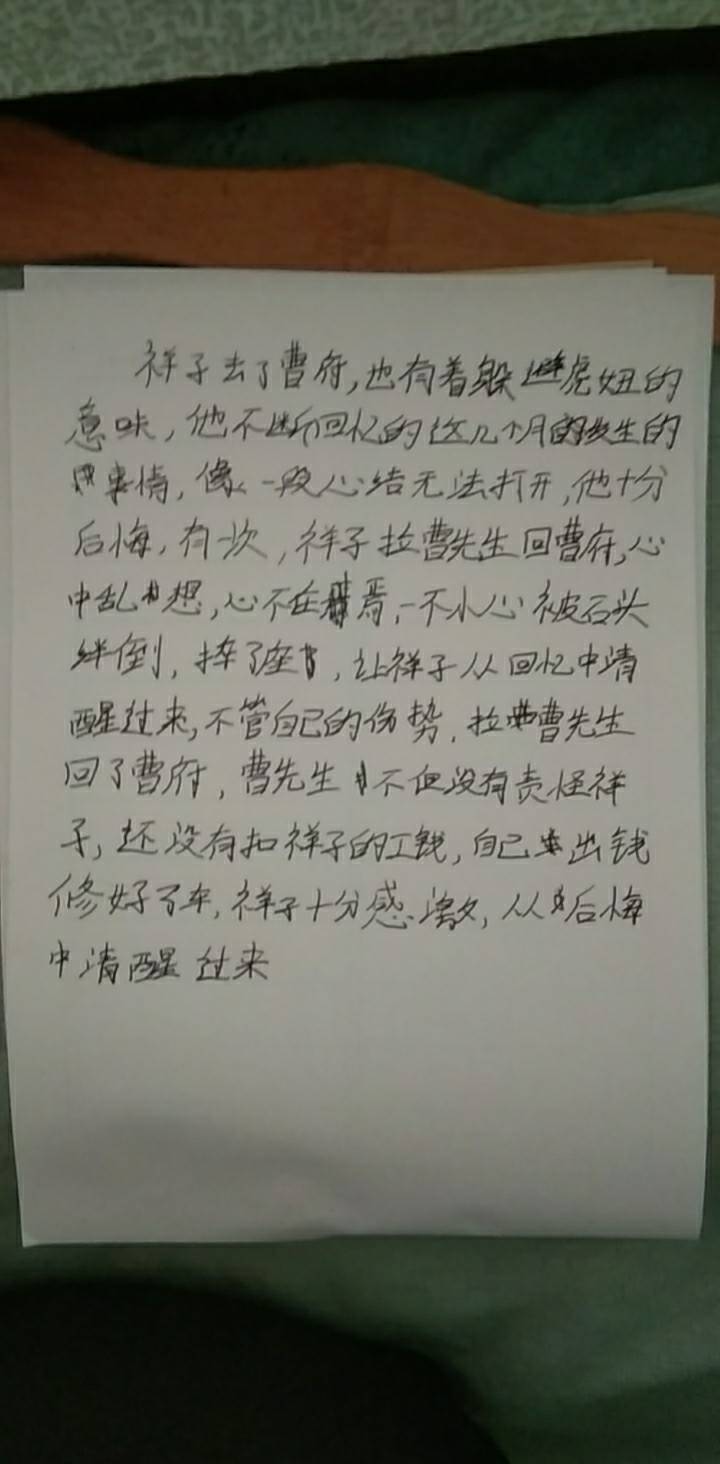 祥子去了曹府,也有着躲避虎妞的
意味,他不断回忆的这几个月的发生的
事情,像一段心结无法打开,他十分
后悔,有一次,祥子拉曹先生回曹府,心
中乱想,心不在焉,一不小心被石头
绊倒,摔了座,让祥子从回忆中清
醒过来,不管自己的伤势,拉曹先生
回了曹府,曹先生不但没有责怪祥
子,还没有扣祥子的工钱,自己出钱
修好了车,祥子十分感激,从后悔
中清醒过来